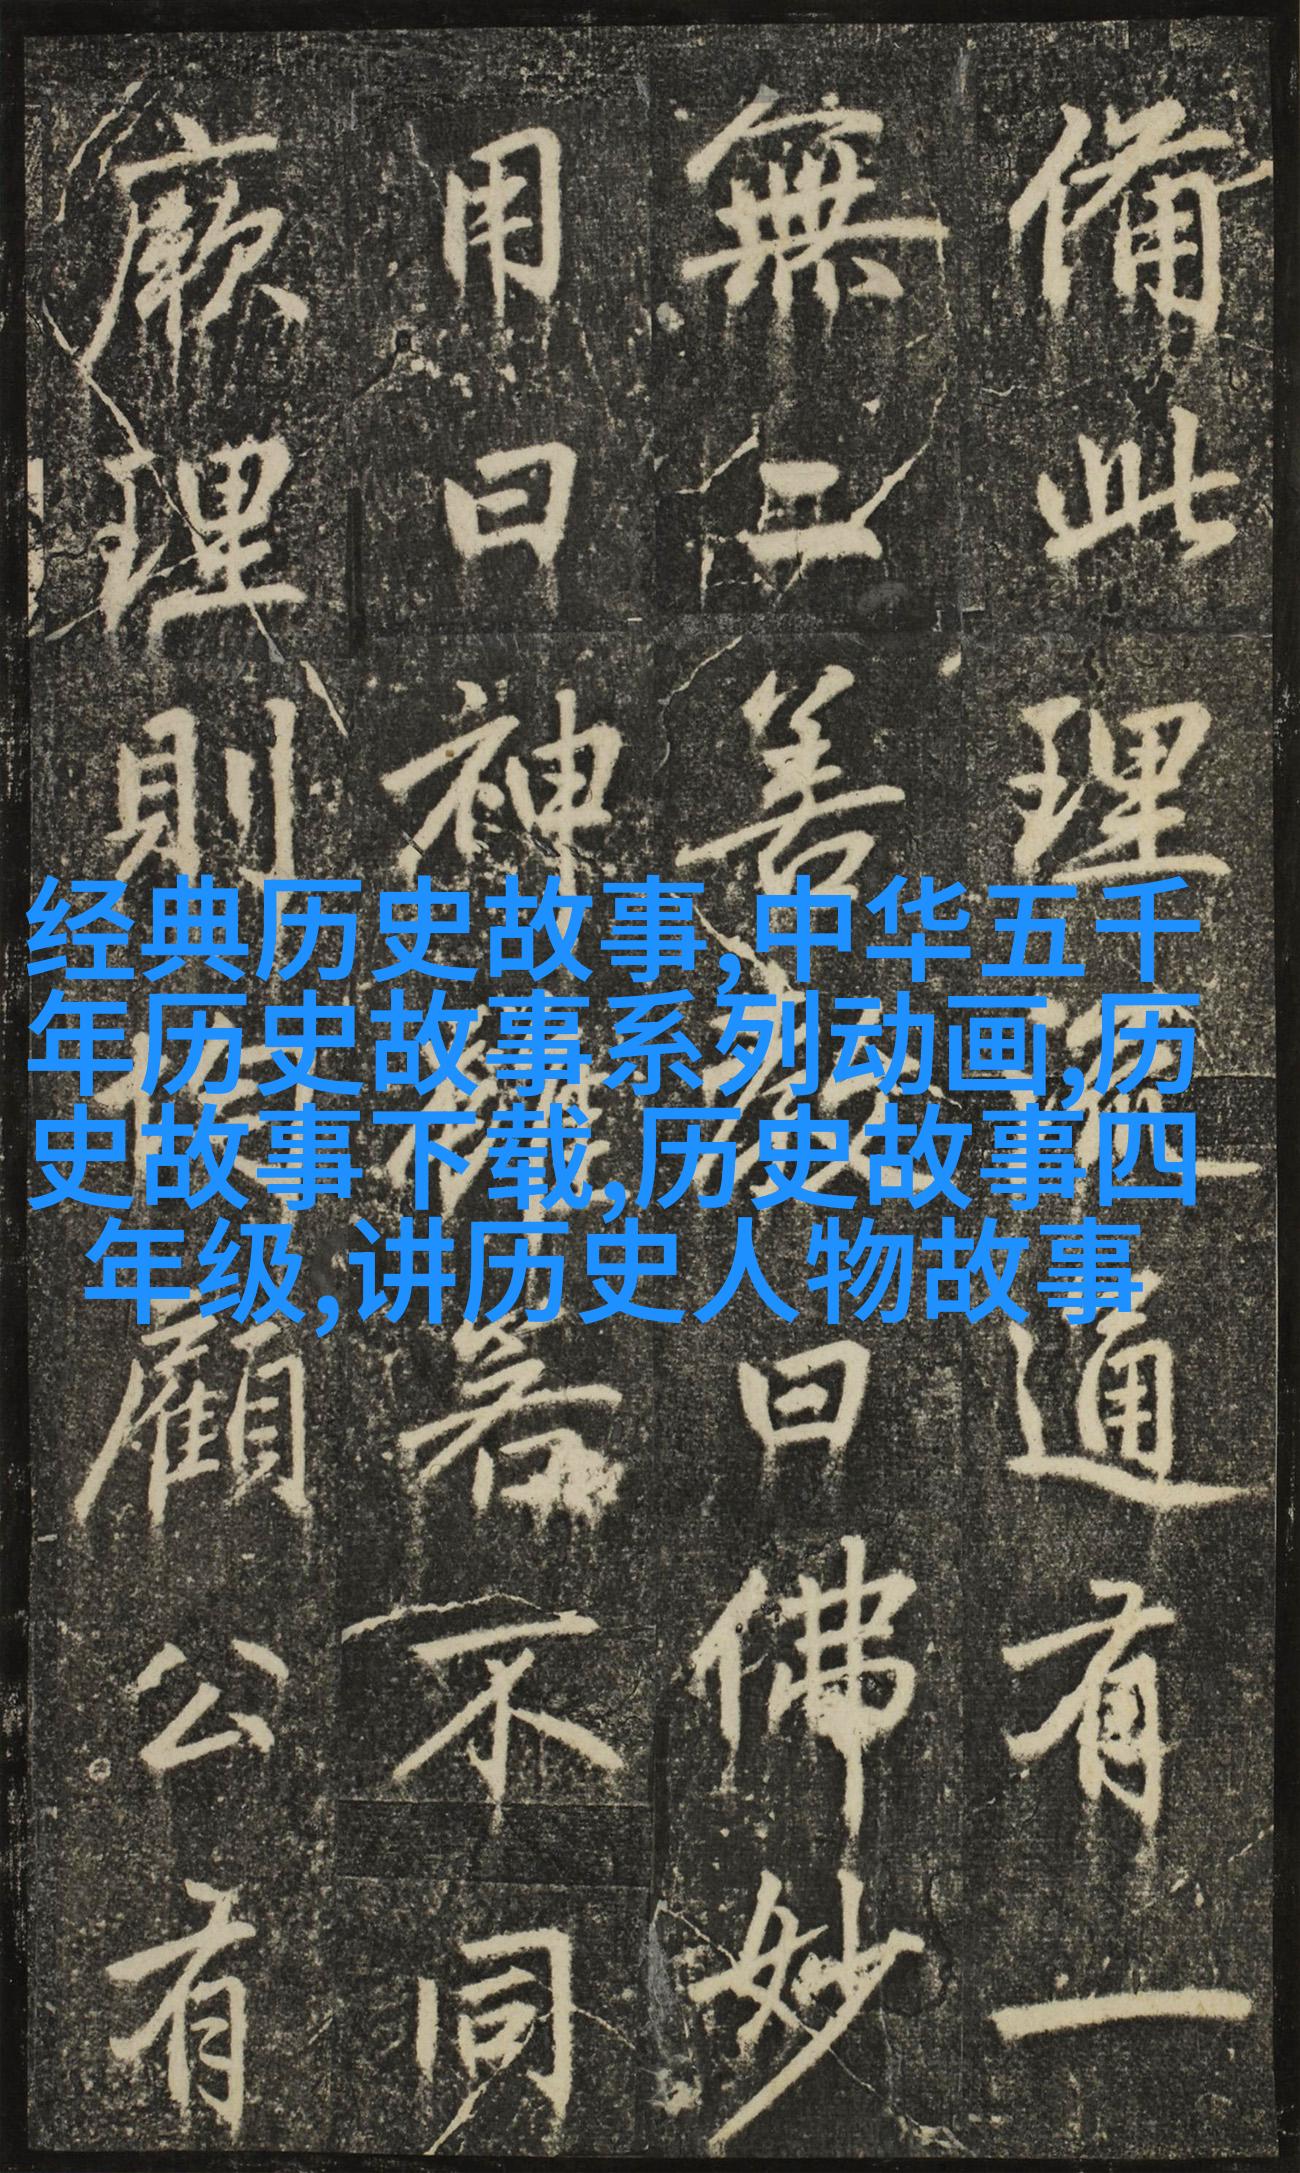 经典历史故事,中华五千
年历史故事系列动画,历
史故事下载,历史故事四
年级,讲历史人物故事
備此理通有一
無二善曰佛妙
用曰神若不同
厥理則顧公有